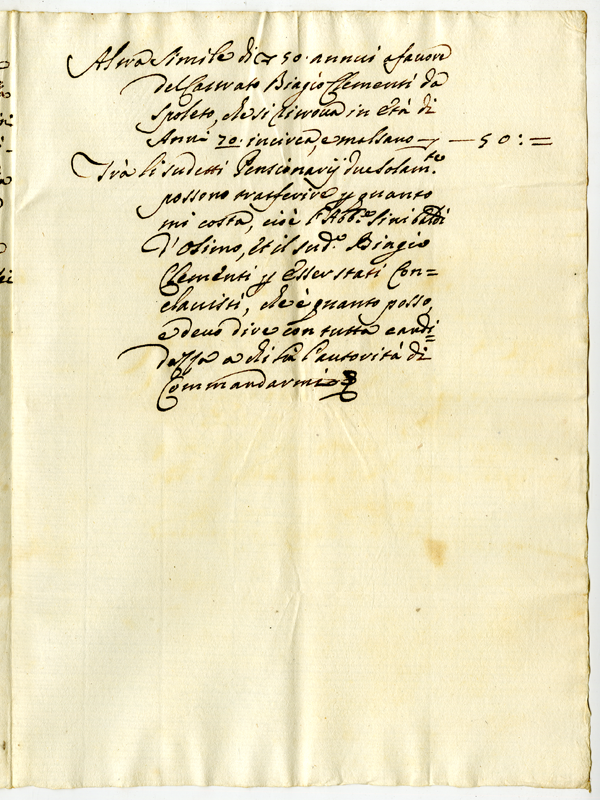 Altra simile di 50 annui a favore
del Castrato Biagio Clementi da
Spoleto, che si ritrova in età di
Anni 70. incirca, e mal sano — 50:=
Trà li sudetti Pensionarij due solam.te
possono trasferire p quanto
mi costa, cioè l'Abb.e Sinibaldi
d'Osimo, et il sud.o Biagio
Clementi p esser stati Con=
clavisti, che è quanto posso,
e devo dire con tutta candi=
dezza a chi hà l'autorità di
Commandarmi